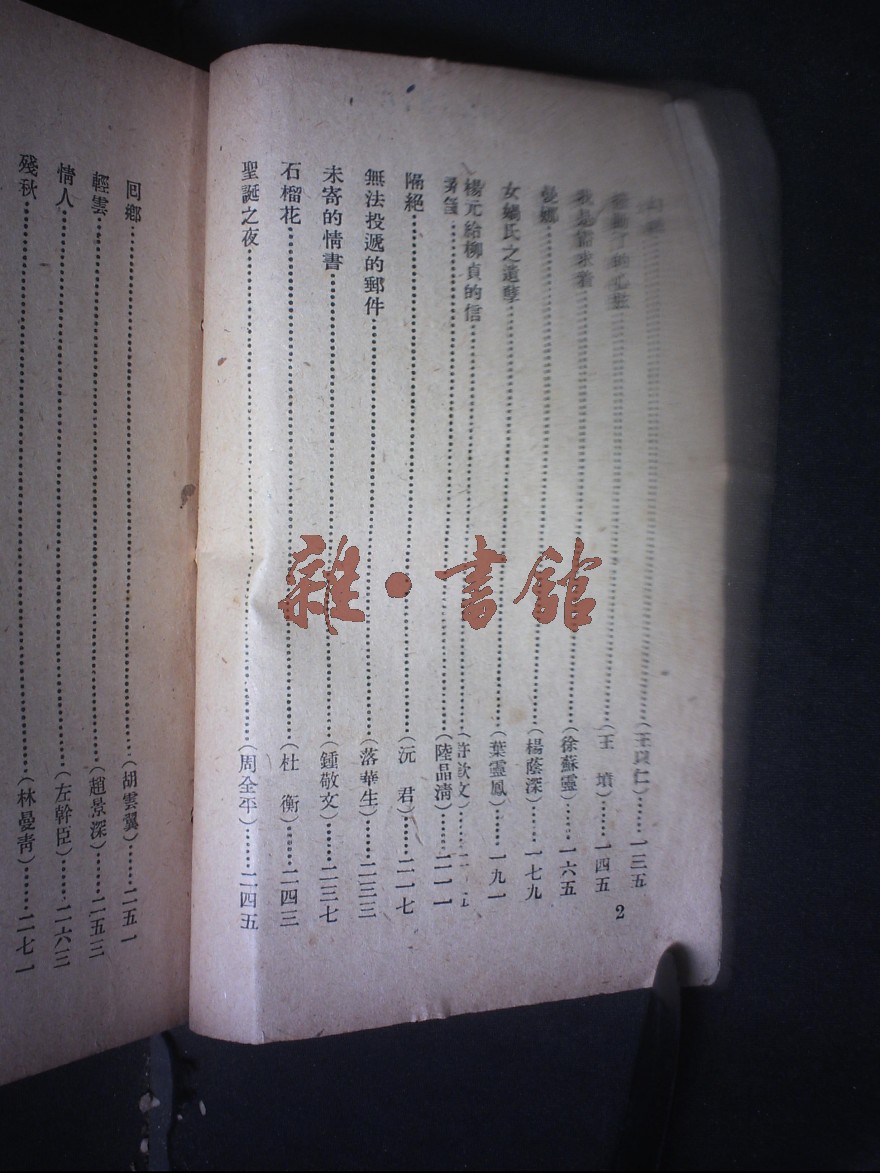 ……(王以仁)……一三五
……(王墳)……一四五
我是個求着……(徐蘇靈)……一六五
曼娜……(楊蔭深)……一七九
女媧氏之遺孽……(葉靈鳳)……一九一
楊元給柳貞的信……(許欽文)……二
素箋……(陸晶清)……二一一
隔絕……(沅君)……二一七
無法投遞的郵件……(落華生)……二三三
未寄的情書……(鍾敬文)……二三七
石榴花……(杜衡)……二四三
聖誕之夜……(周全平)……二四五
2
回鄉……(胡雲翼)……二五一
輕雲……(趙景深)……二五三
情人……(左幹臣)……二六三
殘秋……(林曼青)……二七一
雜·書館